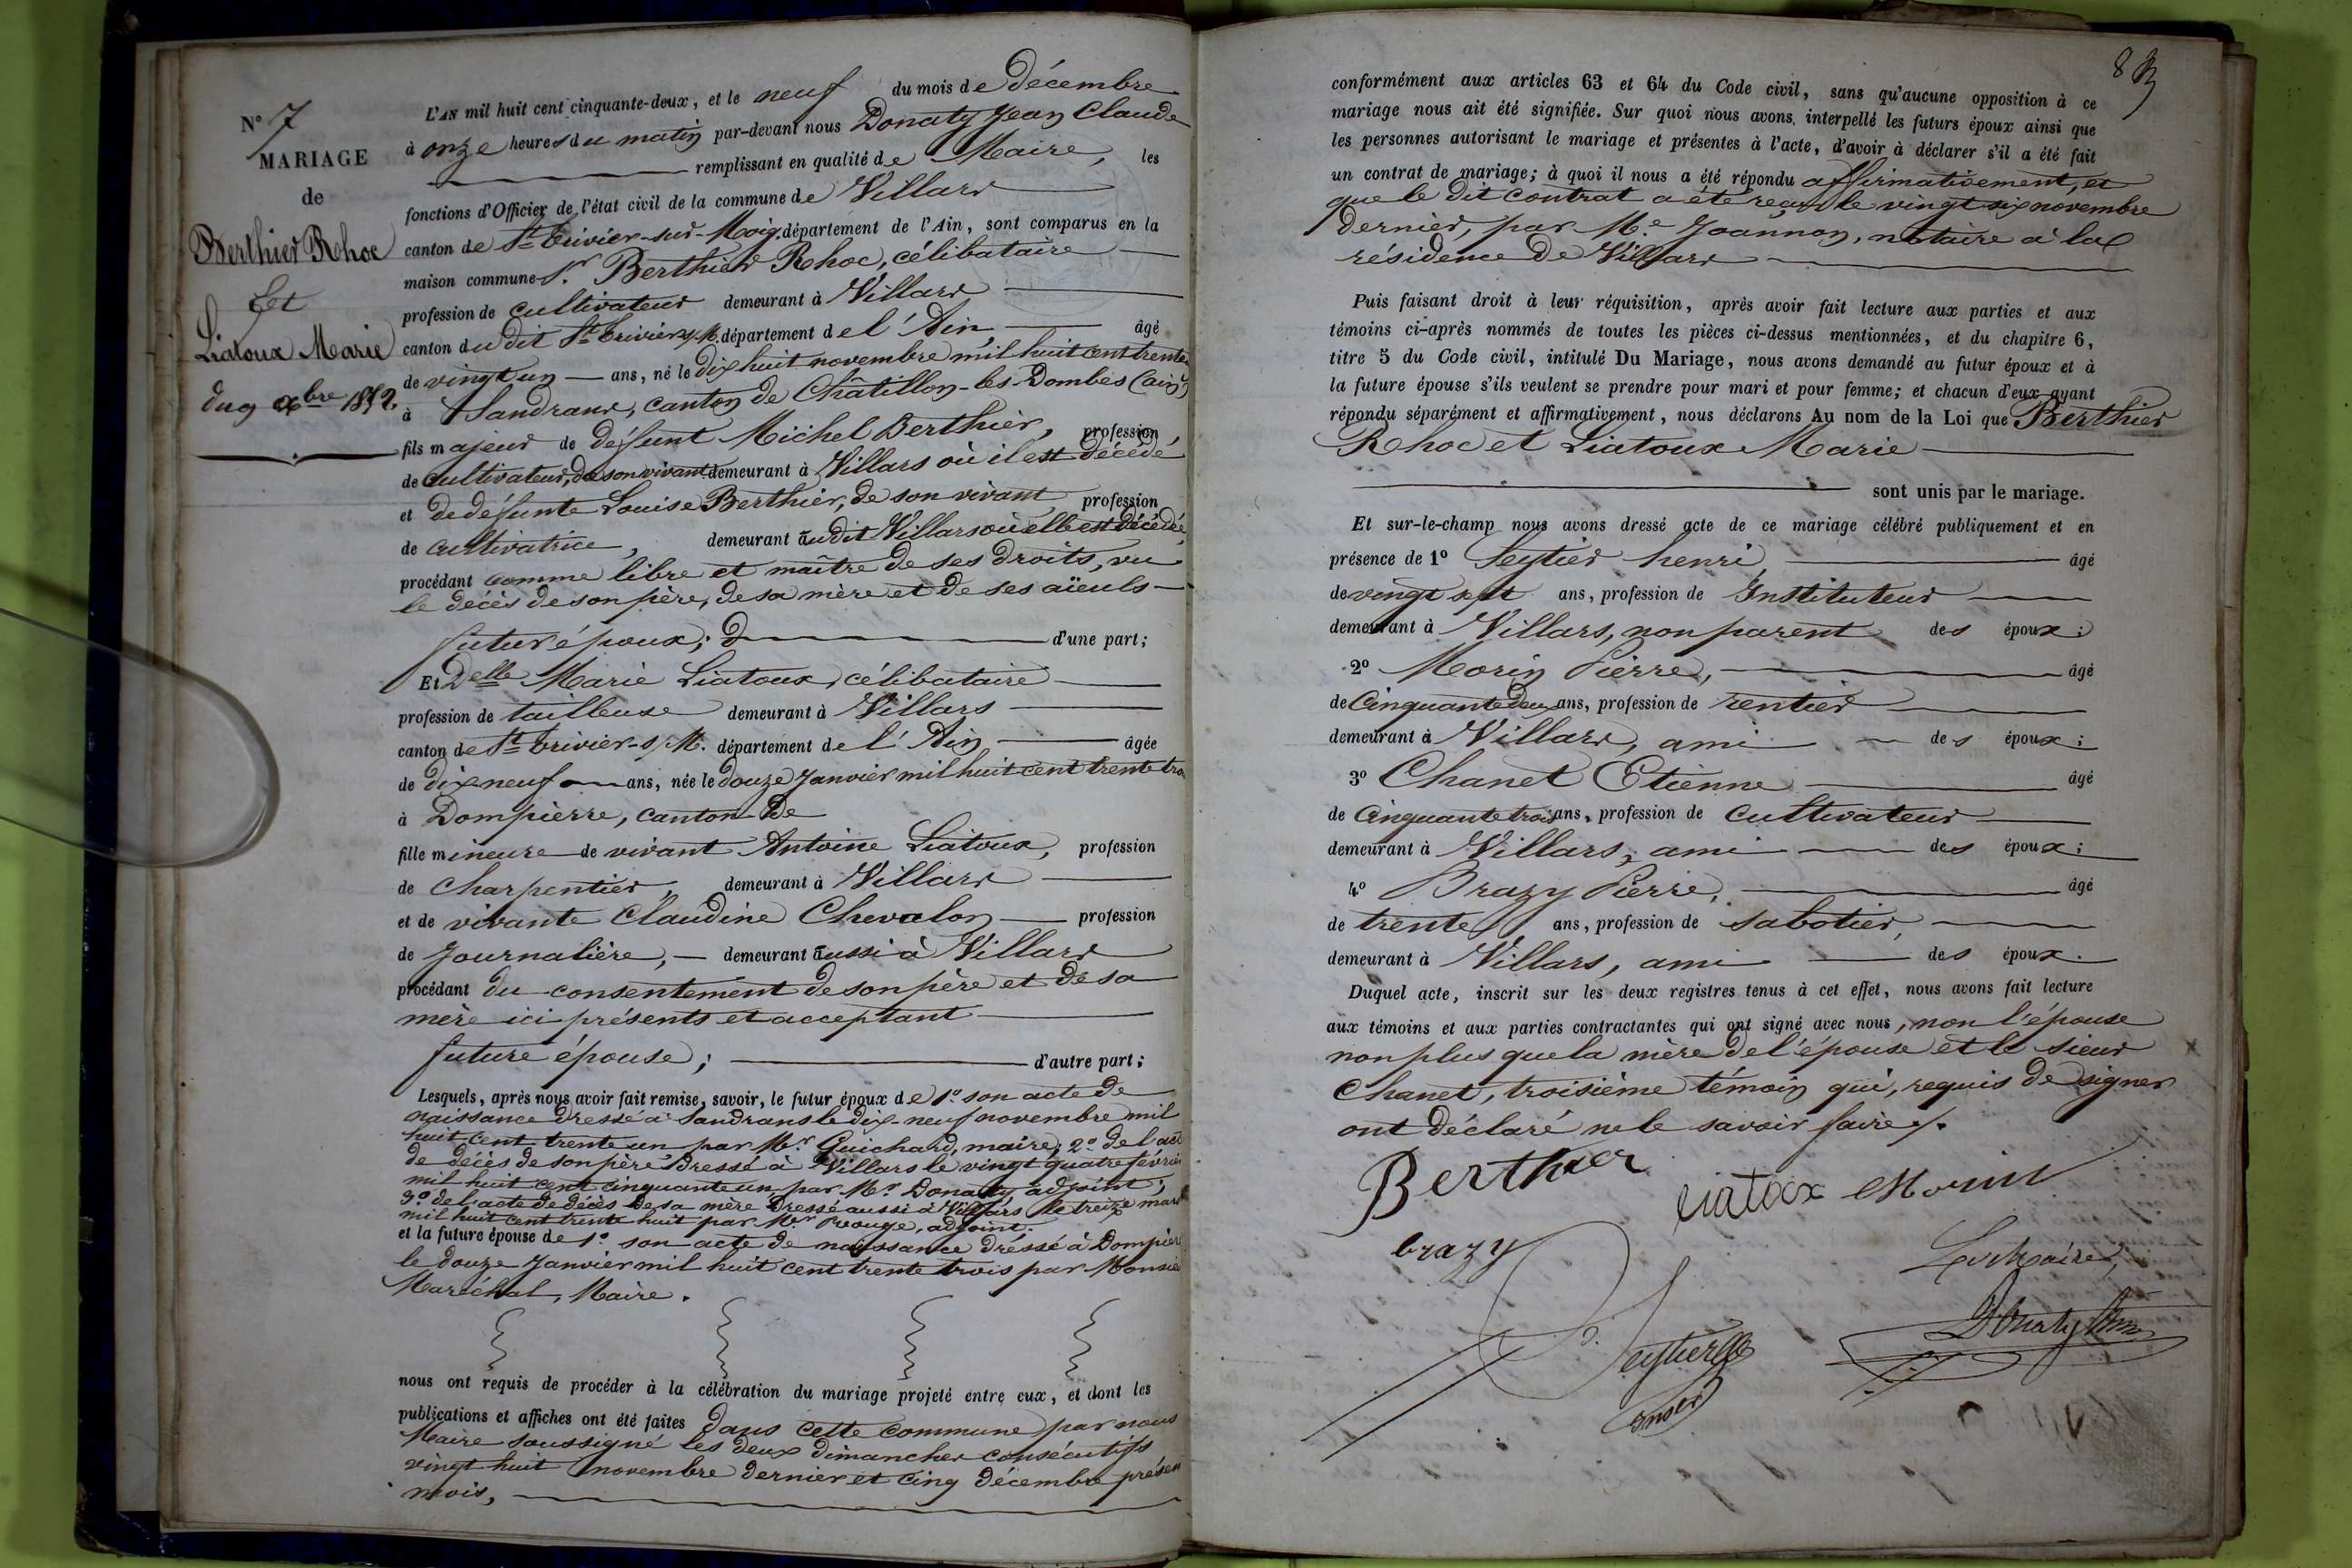 N° 7
MARIAGE
de
Berthier Rhoc
Et
Liatoux Marie
du 9 xbre 1852.
L'AN mil huit cent cinquante-deux, et le neuf du mois de Décembre
à onze heures du matin par-devant nous Donaty Jean Claude
remplissant en qualité de Maire, les
fonctions d'Officier de l'état civil de la commune de Villars
canton de St Trivier-sur-Moig. département de l'Ain, sont comparus en la
maison commune Sr. Berthier Rhoc, célibataire
profession de cultivateur demeurant à Villars
canton du dit St Trivier s/M. département de l'Ain, âgé
de vingt un ans, né le dix huit novembre mil huit cent trente
à Sandrans, canton de Châtillon-les-Dombes (ain)
fils majeur de défunt Michel Berthier, profession
de cultivateur, de son vivant demeurant à Villars où il est décédé
et de défunte Louise Berthier, de son vivant profession
de cultivatrice, demeurant au dit Villars où elle est décédée,
procédant comme libre et maître de ses droits, vu
le décès de son père, de sa mère et de ses aïeuls
futur époux; d'une part;
Et Delle Marie Liatoux, célibataire
profession de tailleuse demeurant à Villars
canton de St trivier-s/M. département de l'Ain âgée
de dix neuf ans, née le douze Janvier mil huit cent trente tro
à Dompierre, canton de
fille mineure de vivant Antoine Liatoux, profession
de Charpentier, demeurant à Villars
et de vivante Claudine Chevalon profession
de Journalière, demeurant aussi à Villars
procédant du consentement de son père et de sa
mère ici présents et acceptant
future épouse; d'autre part;
Lesquels, après nous avoir fait remise, savoir, le futur époux de 1°. son acte de
naissance dressé à Sandrans le dix-neuf novembre mil
huit cent trente un par Mr. Guichard, maire; 2° de l'act
de décès de son père dressé à Villars le vingt quatre février
mil huit cent cinquante un par Mr. Donaty, adjoint;
3° de l'acte de décès de sa mère dressé aussi à Villars le treize mars
mil huit cent trente huit par Mr. Rouge, adjoint.
et la future épouse de 1°. son acte de naissance dressé à Dompier
le douze Janvier mil huit cent trente trois par Monsie
Maréchal, Maire.
nous ont requis de procéder à la célébration du mariage projeté entre eux, et dont les
publications et affiches ont été faites dans cette commune par nous
Maire soussigné les deux dimanches consécutifs
vingt huit novembre dernier et cinq décembre présen
mois,
83
conformément aux articles 63 et 64 du Code civil, sans qu'aucune opposition à ce
mariage nous ait été signifiée. Sur quoi nous avons interpellé les futurs époux ainsi que
les personnes autorisant le mariage et présentes à l'acte, d'avoir à déclarer s'il a été fait
un contrat de mariage; à quoi il nous a été répondu affirmativement, et
que le dit contrat a été reçu le vingt six novembre
dernier, par Me. Joannon, notaire à la
résidence de Villars
Puis faisant droit à leur réquisition, après avoir fait lecture aux parties et aux
témoins ci-après nommés de toutes les pièces ci-dessus mentionnées, et du chapitre 6,
titre 5 du Code civil, intitulé Du Mariage, nous avons demandé au futur époux et à
la future épouse s'ils veulent se prendre pour mari et pour femme; et chacun d'eux ayant
répondu séparément et affirmativement, nous déclarons Au nom de la Loi que Berthier
Rhoc et Liatoux Marie
sont unis par le mariage.
Et sur-le-champ nous avons dressé acte de ce mariage célébré publiquement et en
présence de 1° Seytier henri, âgé
de vingt sept ans, profession de Instituteur
demeurant à Villars, non parent des époux;
2° Morin Pierre, âgé
de Cinquante deux ans, profession de rentier
demeurant à Villars, ami des époux;
3° Chanet Etienne âgé
de Cinquante trois ans, profession de Cultivateur
demeurant à Villars, ami des époux;
4° Brazy Pierre, âgé
de trente ans, profession de sabotier,
demeurant à Villars, ami des époux.
Duquel acte, inscrit sur les deux registres tenus à cet effet, nous avons fait lecture
aux témoins et aux parties contractantes qui ont signé avec nous, non l'épouse
non plus que la mère de l'épouse et le sieur
Chanet, troisième témoin qui, requis de signer
ont déclaré ne le savoir faire ./.
Berthier
Liatoux Morin
brazy
Le Maire,
Seytier
Donaty